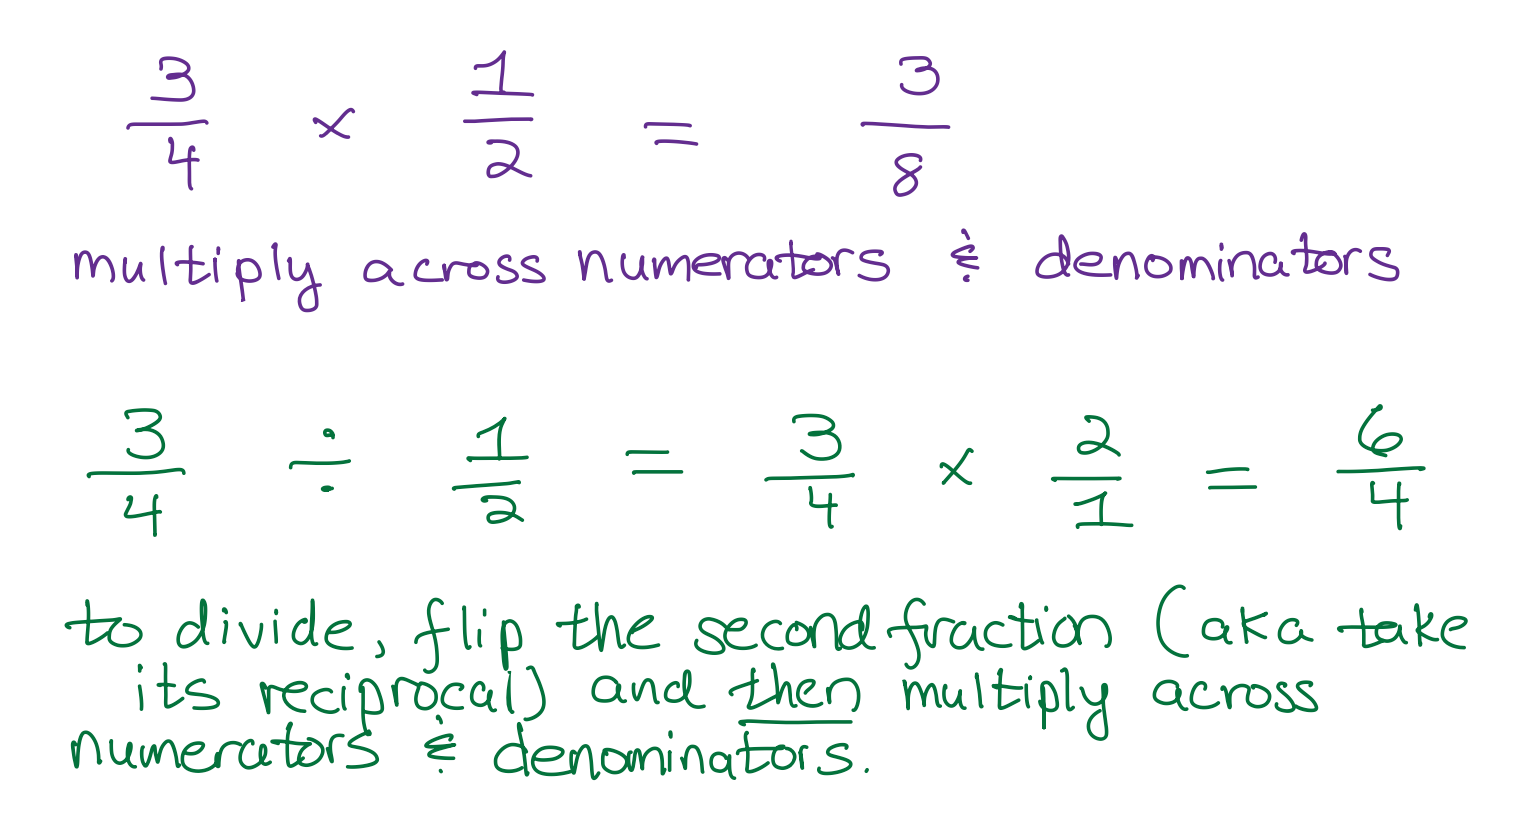 3/4 × 1/2 = 3/8
multiply across numerators & denominators
3/4 ÷ 1/2 = 3/4 × 2/1 = 6/4
to divide, flip the second fraction (aka take
its reciprocal) and then multiply across
numerators & denominators.